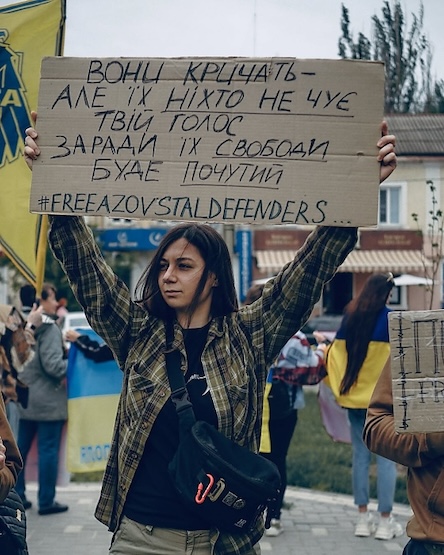 ВОНИ КРИЧАТЬ –
АЛЕ ЇХ НІХТО НЕ ЧУЄ
ТВІЙ ГОЛОС
ЗАРАДИ ЇХ СВОБОДИ
БУДЕ ПОЧУТИЙ
#FREEAZOVSTALDEFENDERS...